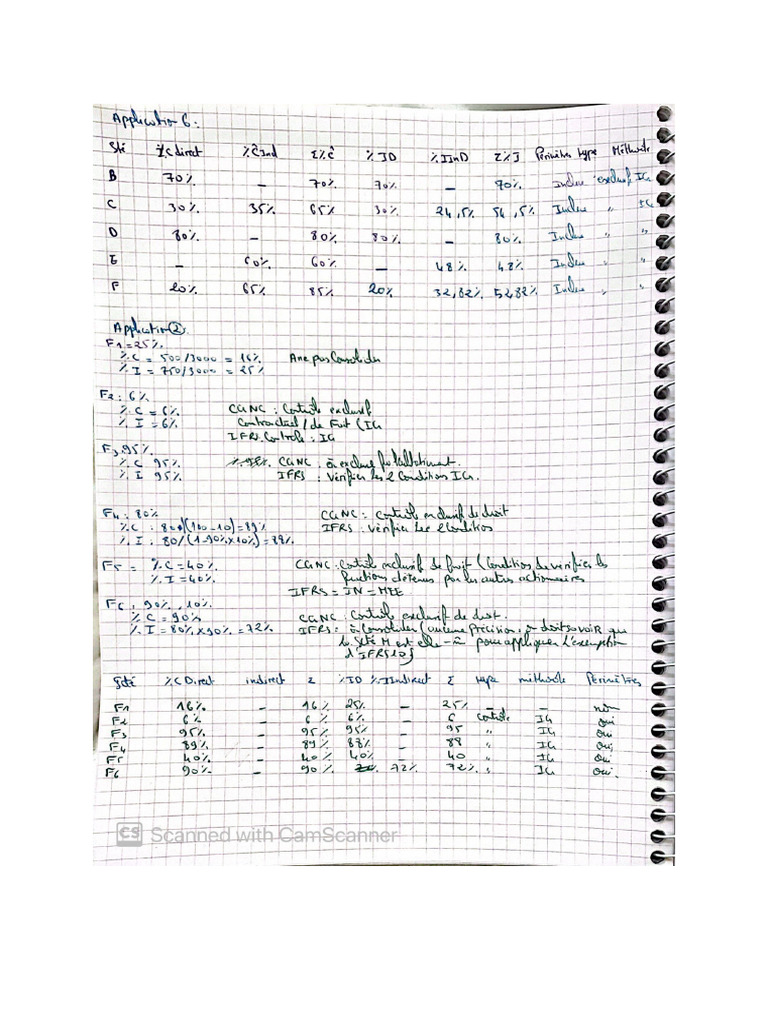 Application 6 :
Sté %C direct %C Ind Σ%C % ID % IInD Σ%I Périmètre type Méthode
B 70% – 70% 70% – 70% Inclu exclusif IG
C 30% 35% 65% 30% 24,5% 54,5% Inclu " IG
D 80% – 80% 80% – 80% Inclu " "
E – 60% 60% – 48% 48% Inclu " "
F 20% 65% 85% 20% 32,82% 52,82% Inclu " "
Application ②
F1 = 25%
% C = 500/3000 = 16% A ne pas Consolider
% I = 750/3000 = 25%
F2 : 6%
% C = 6% CGNC : Contrôle exclusif
% I = 6% Contractuel / de Fait (IG
IFRS Contrôle : IG
F3 95%
% C 95% CGNC : à exclure
% I 95% IFRS : Vérifier les 2 Conditions IG.
F4 : 80%
CGNC : Contrôle exclusif de droit
% C : 80/(100-10) = 89% IFRS : vérifier les 2 Conditions
% I : 80/(1-90% x 10%) = 88%
F5 = % C = 40% CGNC : Contrôle exclusif de fait (Condition de vérifier les
% I = 40% fractions détenus par les autres actionnaires
IFRS = IN = MEE
F6 : 90% , 10%
% C = 90% CGNC Contrôle exclusif de droit.
% I = 80% x 90% = 72% IFRS : à Consolider (aucune précision, on doit savoir que
la Sété M est elle pour appliquer l'exemption
d'IFRS 10)
Sété % C Direct indirect Σ % ID % I Indirect Σ type méthode Périmètres
F1 16% – 16% 25% – 25% – – non
F2 6% – 6% 6% – 6 Contrôle IG oui
F3 95% – 95% 95% – 95 " IG oui
F4 89% – 89% 88% – 88 " IG oui
F5 40% – 40% 40% – 40 " IG oui
F6 90% – 90% 72% 72% " IG oui.
CS Scanned with CamScanner